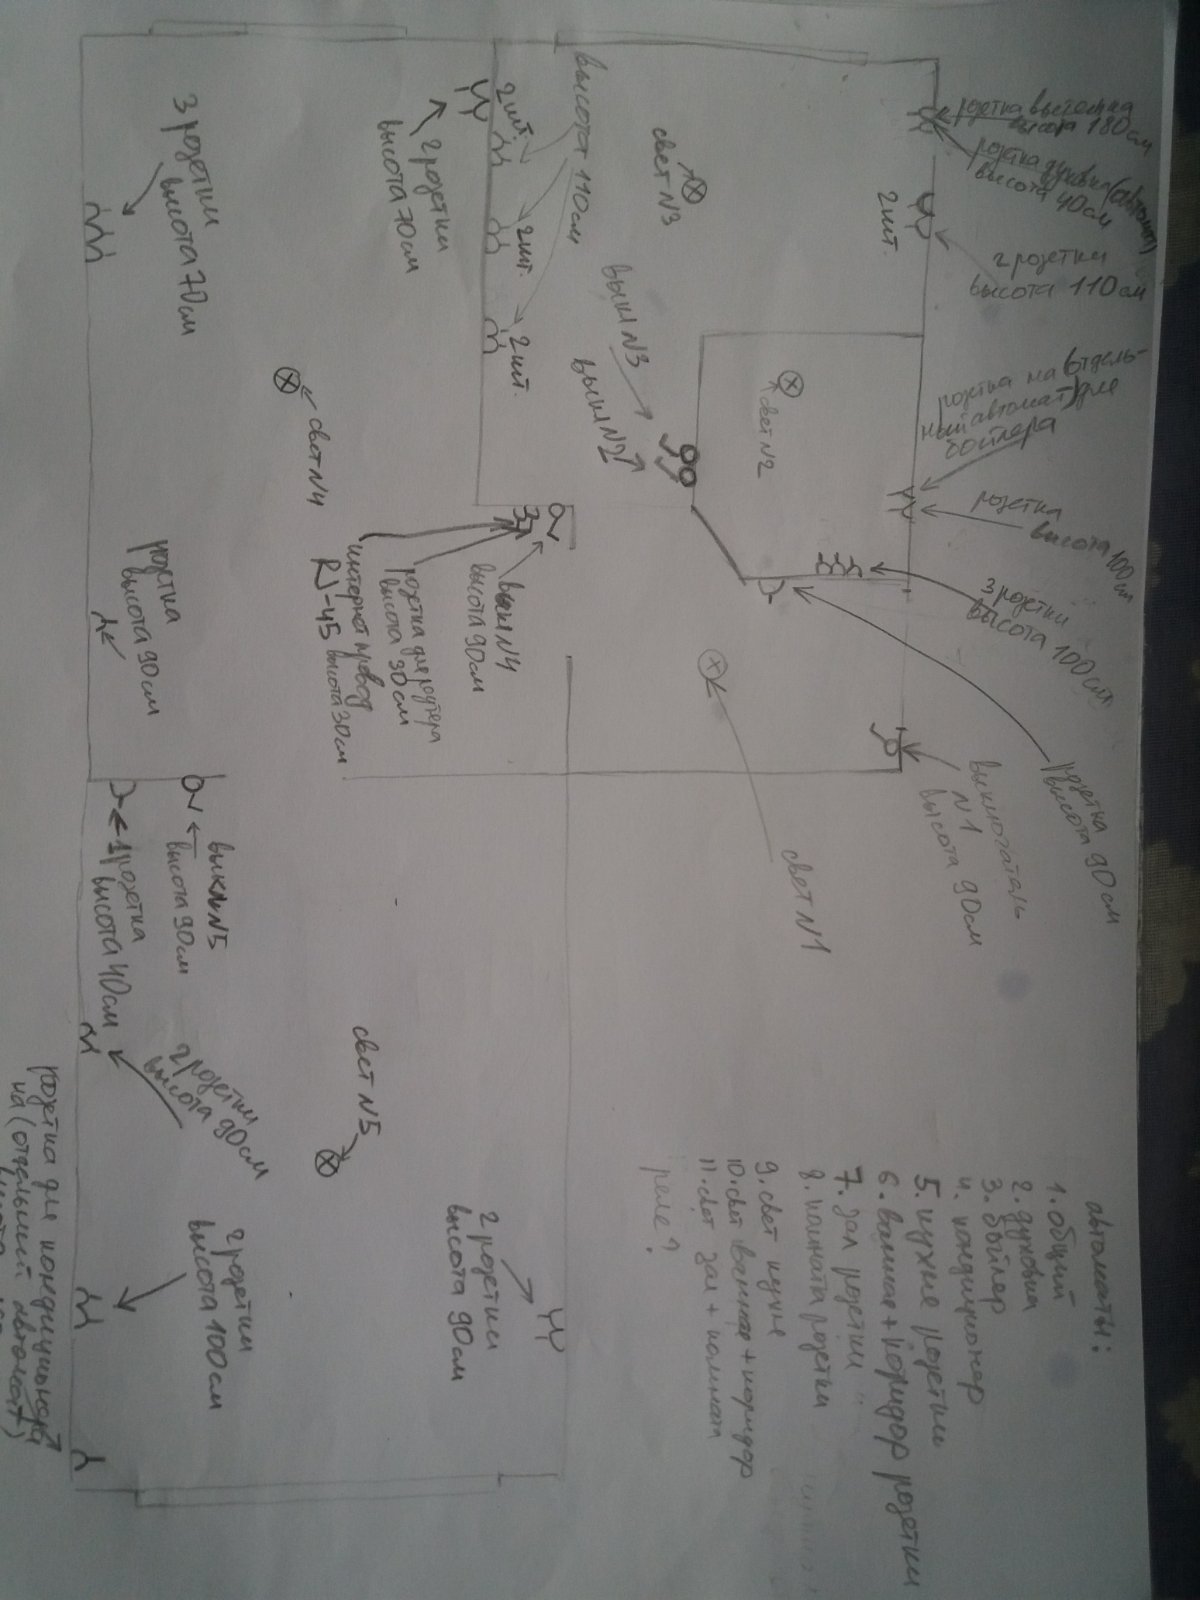 розетка вытяжка
высота 180см
розетка духовка (автомат)
высота 40см
2шт.
2 розетки
высота 110см
розетка на (отдель-
ный автомат) для
бойлера
розетка
высота 100см
3 розетки
высота 100см
розетка
высота 90см
выключатель
N1
высота 90см
свет N1
свет N2
свет N3
выкл N3
выкл N2
высота 110см
2шт.
2шт.
2шт.
2 розетки
высота 70см
3 розетки
высота 70см
свет N4
выкл N4
высота 90см
розетка для роутера
высота 30см
интернет провод
RJ-45 высота 30см
розетка
высота 90см
выкл N5
высота 90см
1 розетка
высота 40см
2 розетки
высота 90см
свет N5
2 розетки
высота 90см
2 розетки
высота 100см
розетка для кондиционера
на (отдельный автомат)
автоматы:
1. общий
2. духовка
3. бойлер
4. кондиционер
5. кухне розетки
6. ванная + коридор розетки
7. зал розетки
8. комната розетки
9. свет кухне
10. свет ванная + коридор
11. свет зал + комната
реле?